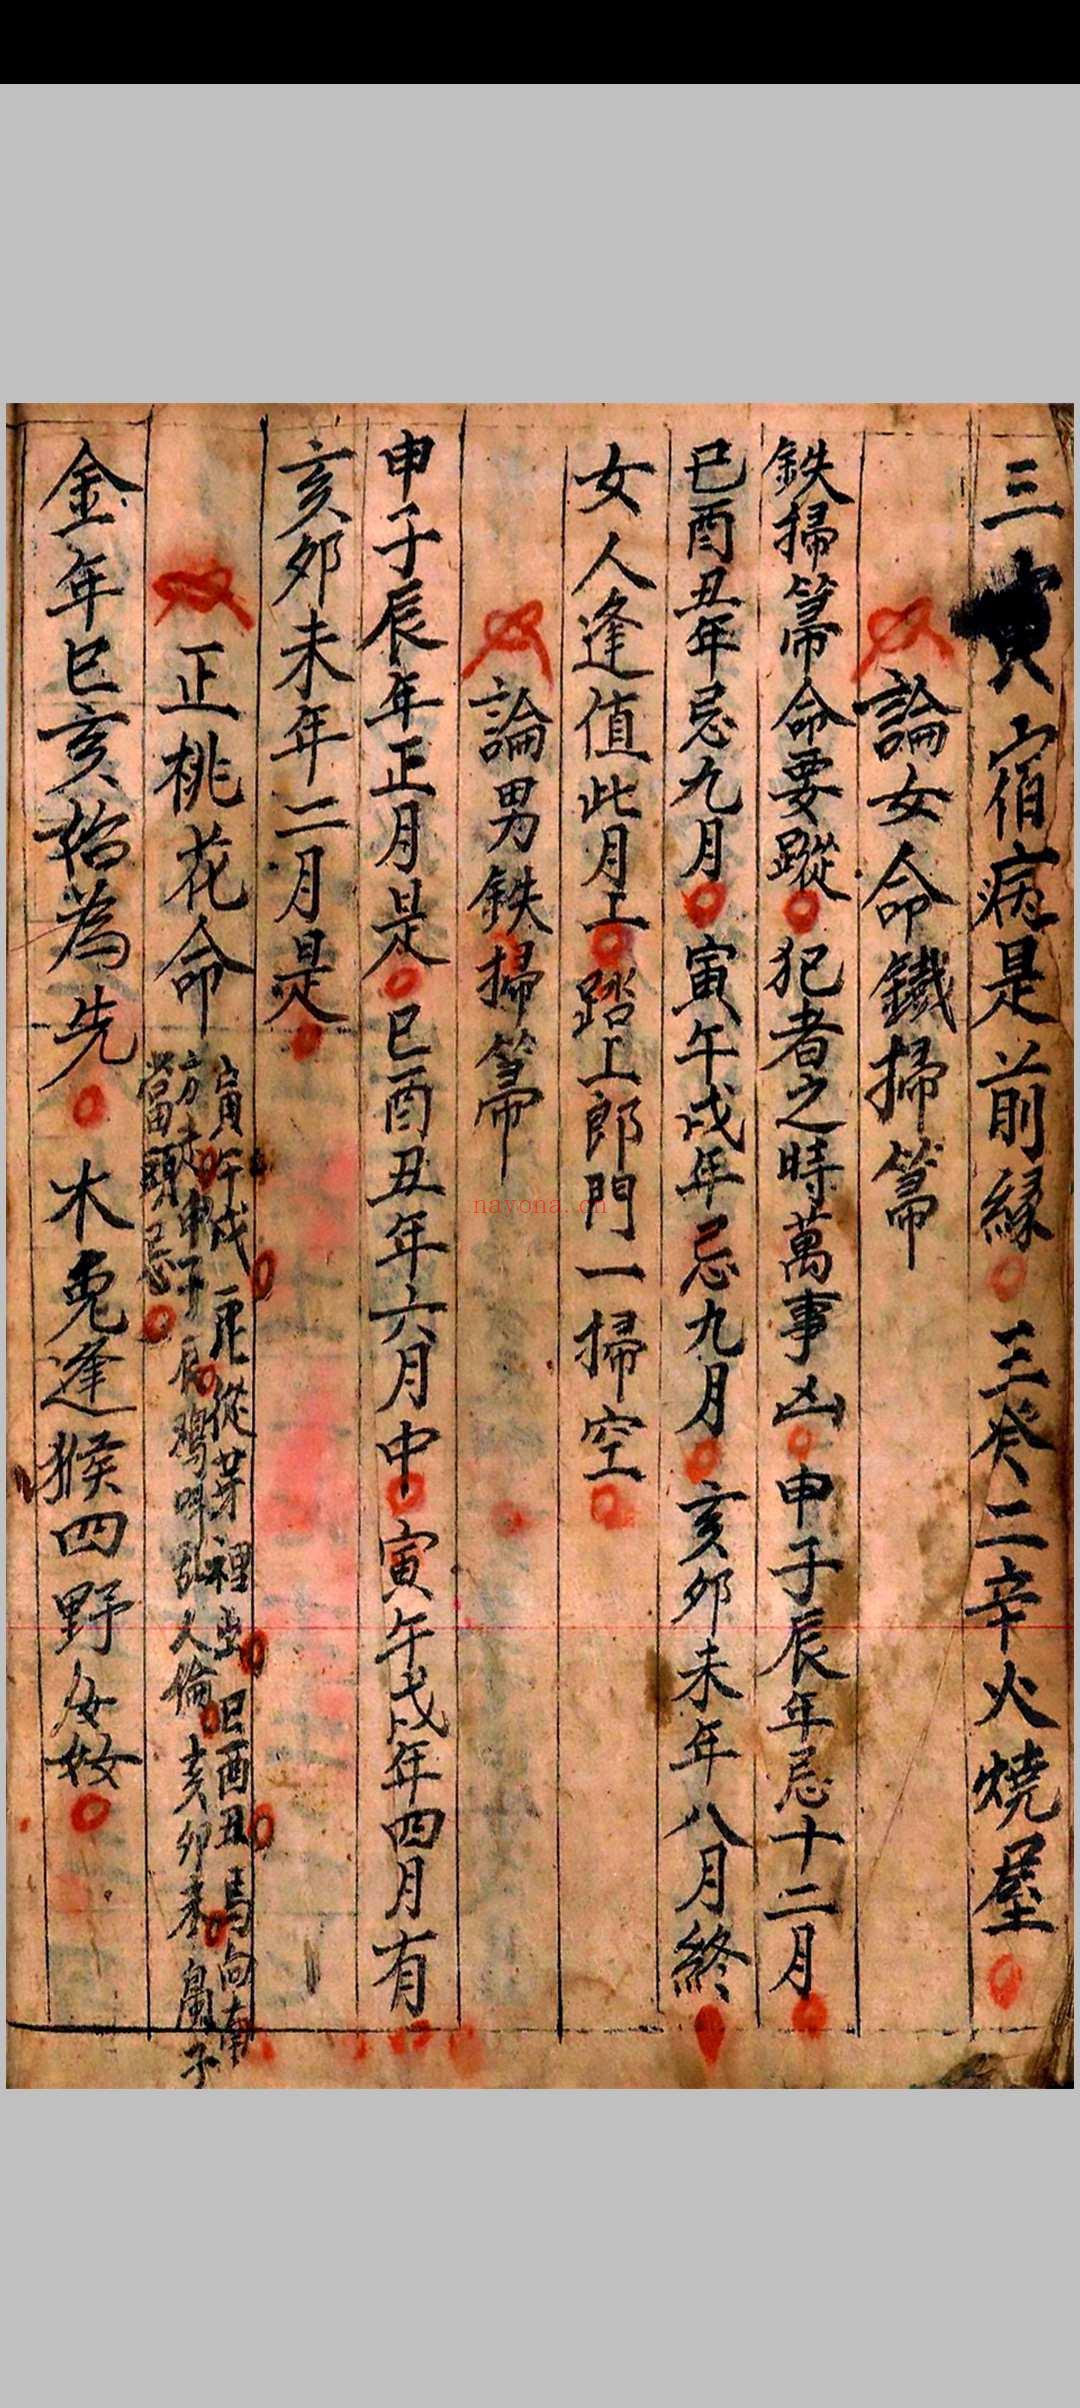 三寅宿病是前緣三癸二辛火燒屋
論女命鐵掃箒
鉄掃箒命要蹤犯者之時萬事凶申子辰年忌十二月
巳酉丑年忌九月寅午戌年忌九月亥卯未年八月終
女人逢值此月上踏上郎門一掃空
論男鉄掃箒
申子辰年正月是巳酉丑年六月中寅午戌年四月有
亥卯未年二月是
正桃花命
寅午戌兎從芽裡出巳酉丑馬向南
方走申子辰鷄叫乱人倫亥卯未鼠子
當頭忌
金年巳亥為先木兎逢猴四野
nayona.cn